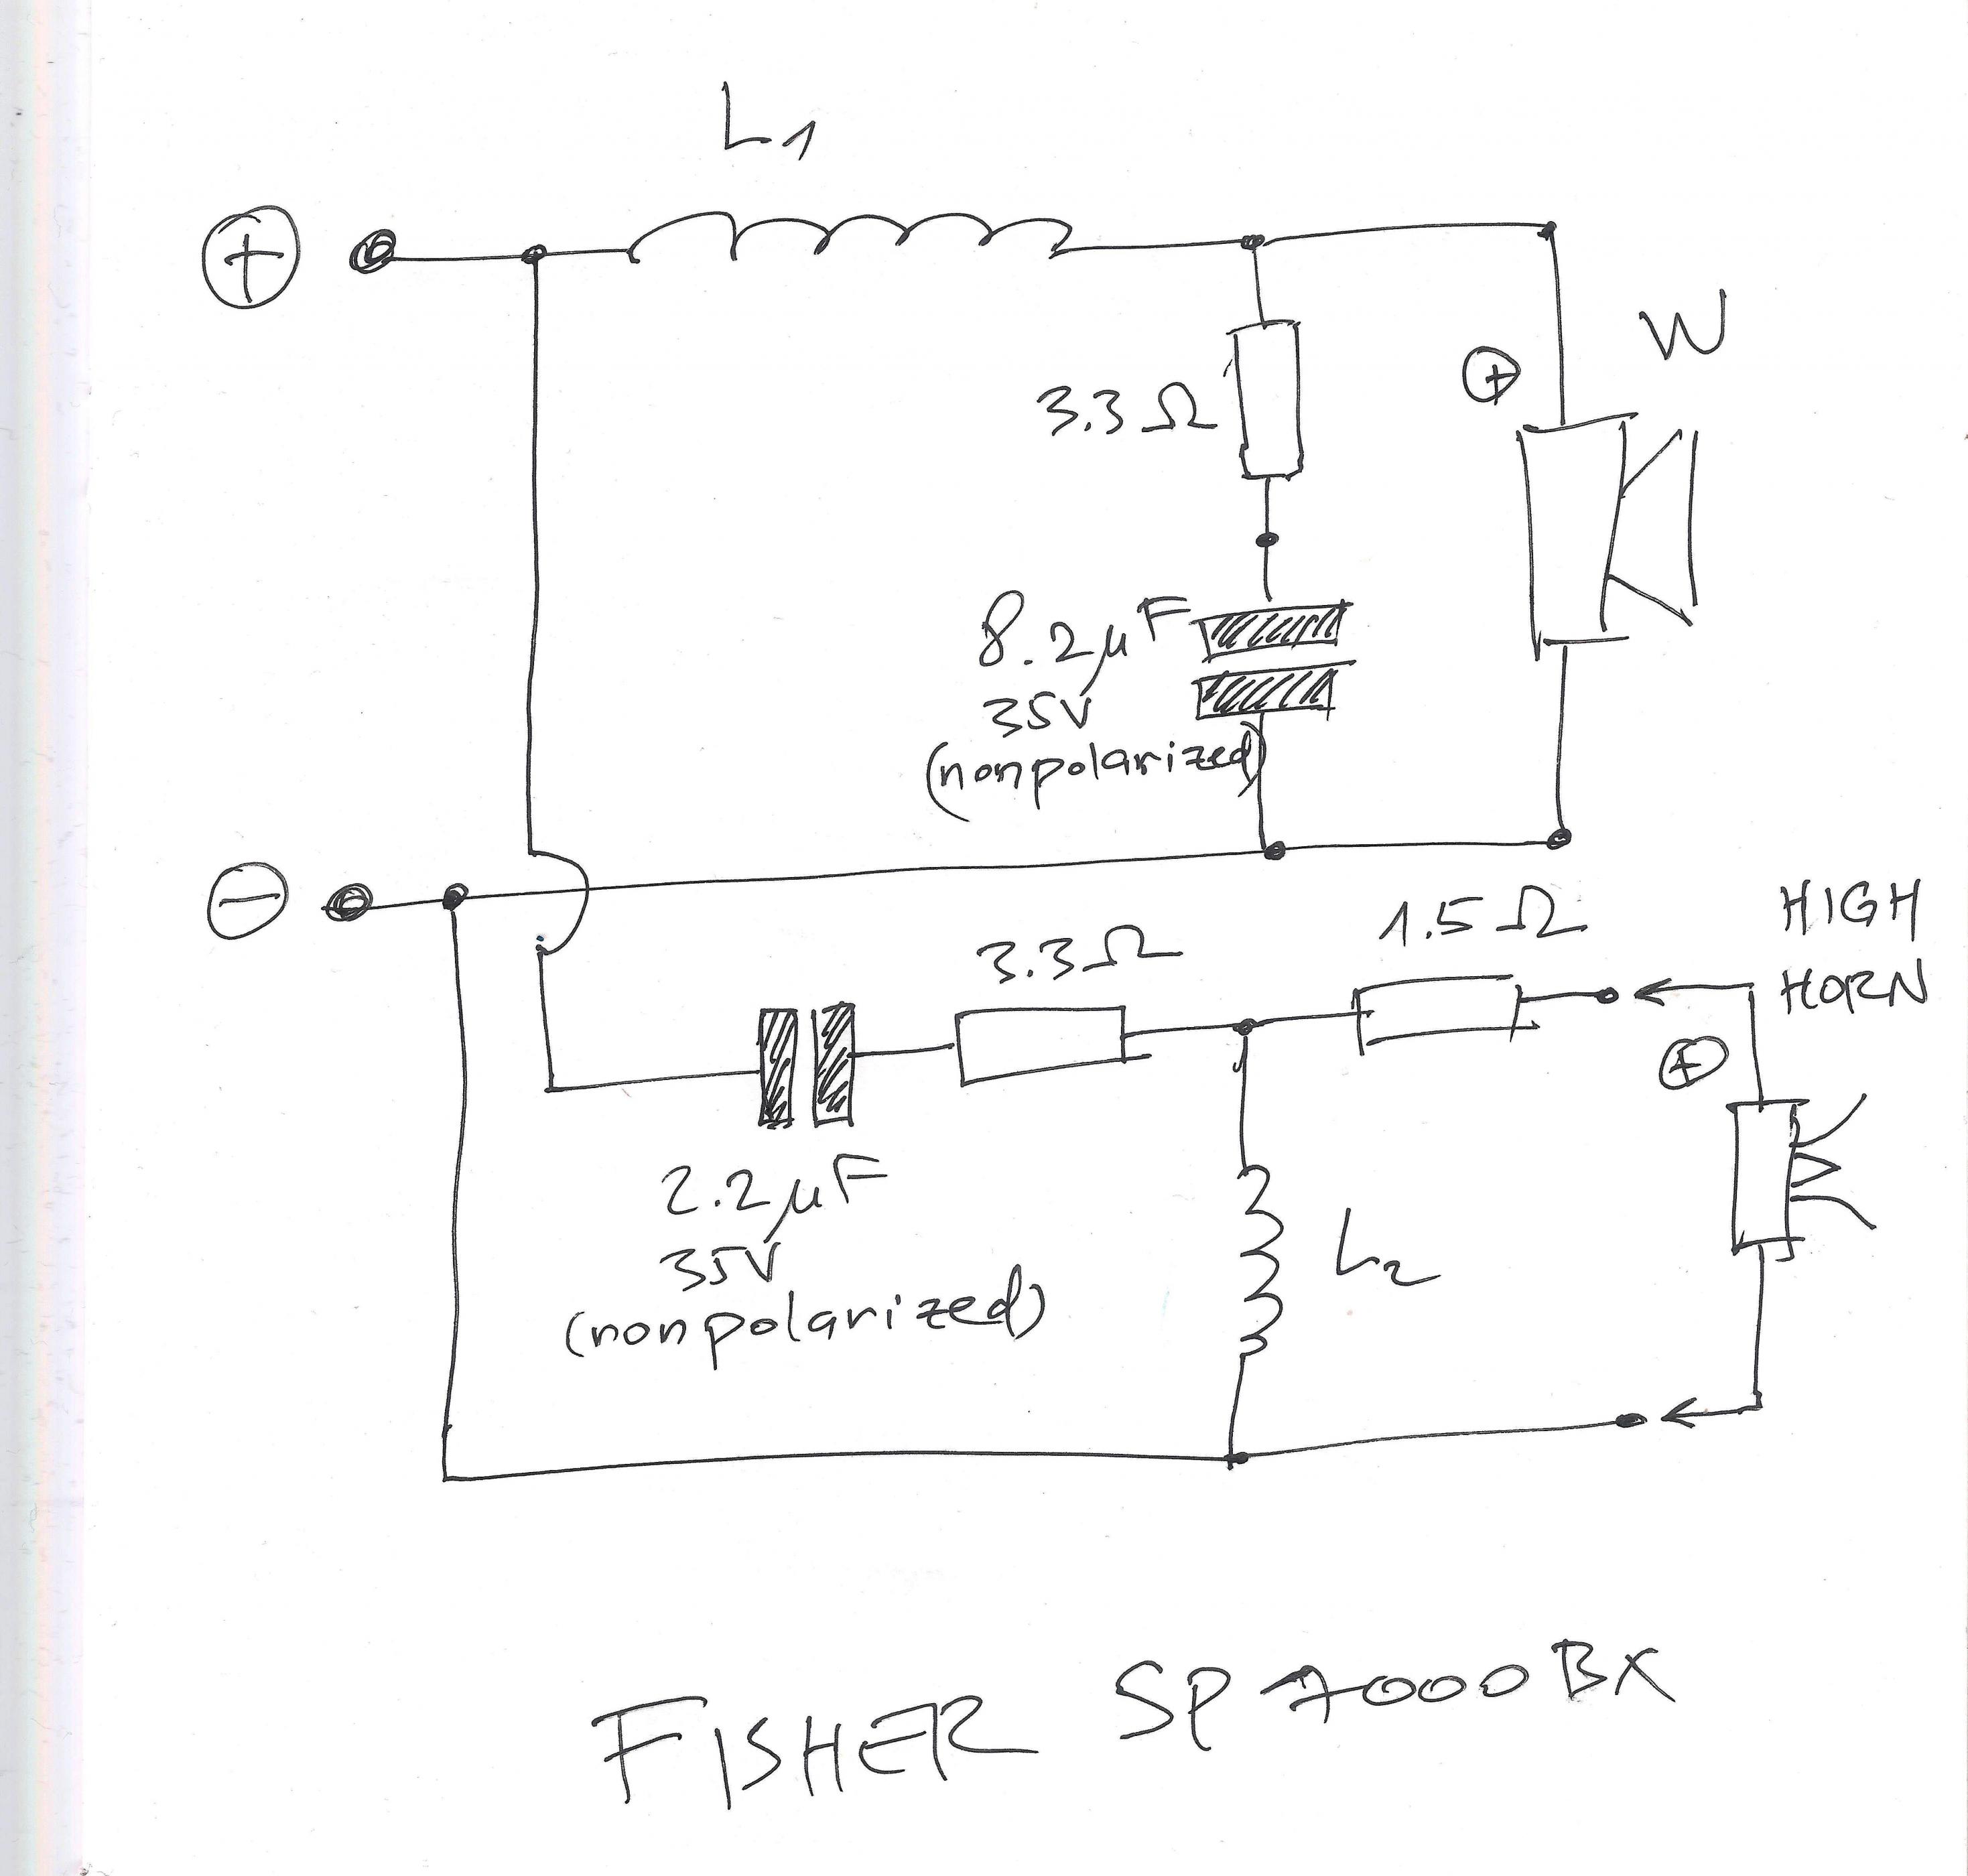 L1
+
3.3 Ω
+
W
8.2 µF
35V
(nonpolarized)
−
3.3 Ω
1.5 Ω
HIGH
HORN
+
2.2 µF
35V
(nonpolarized)
L2
FISHER SP 7000 BX